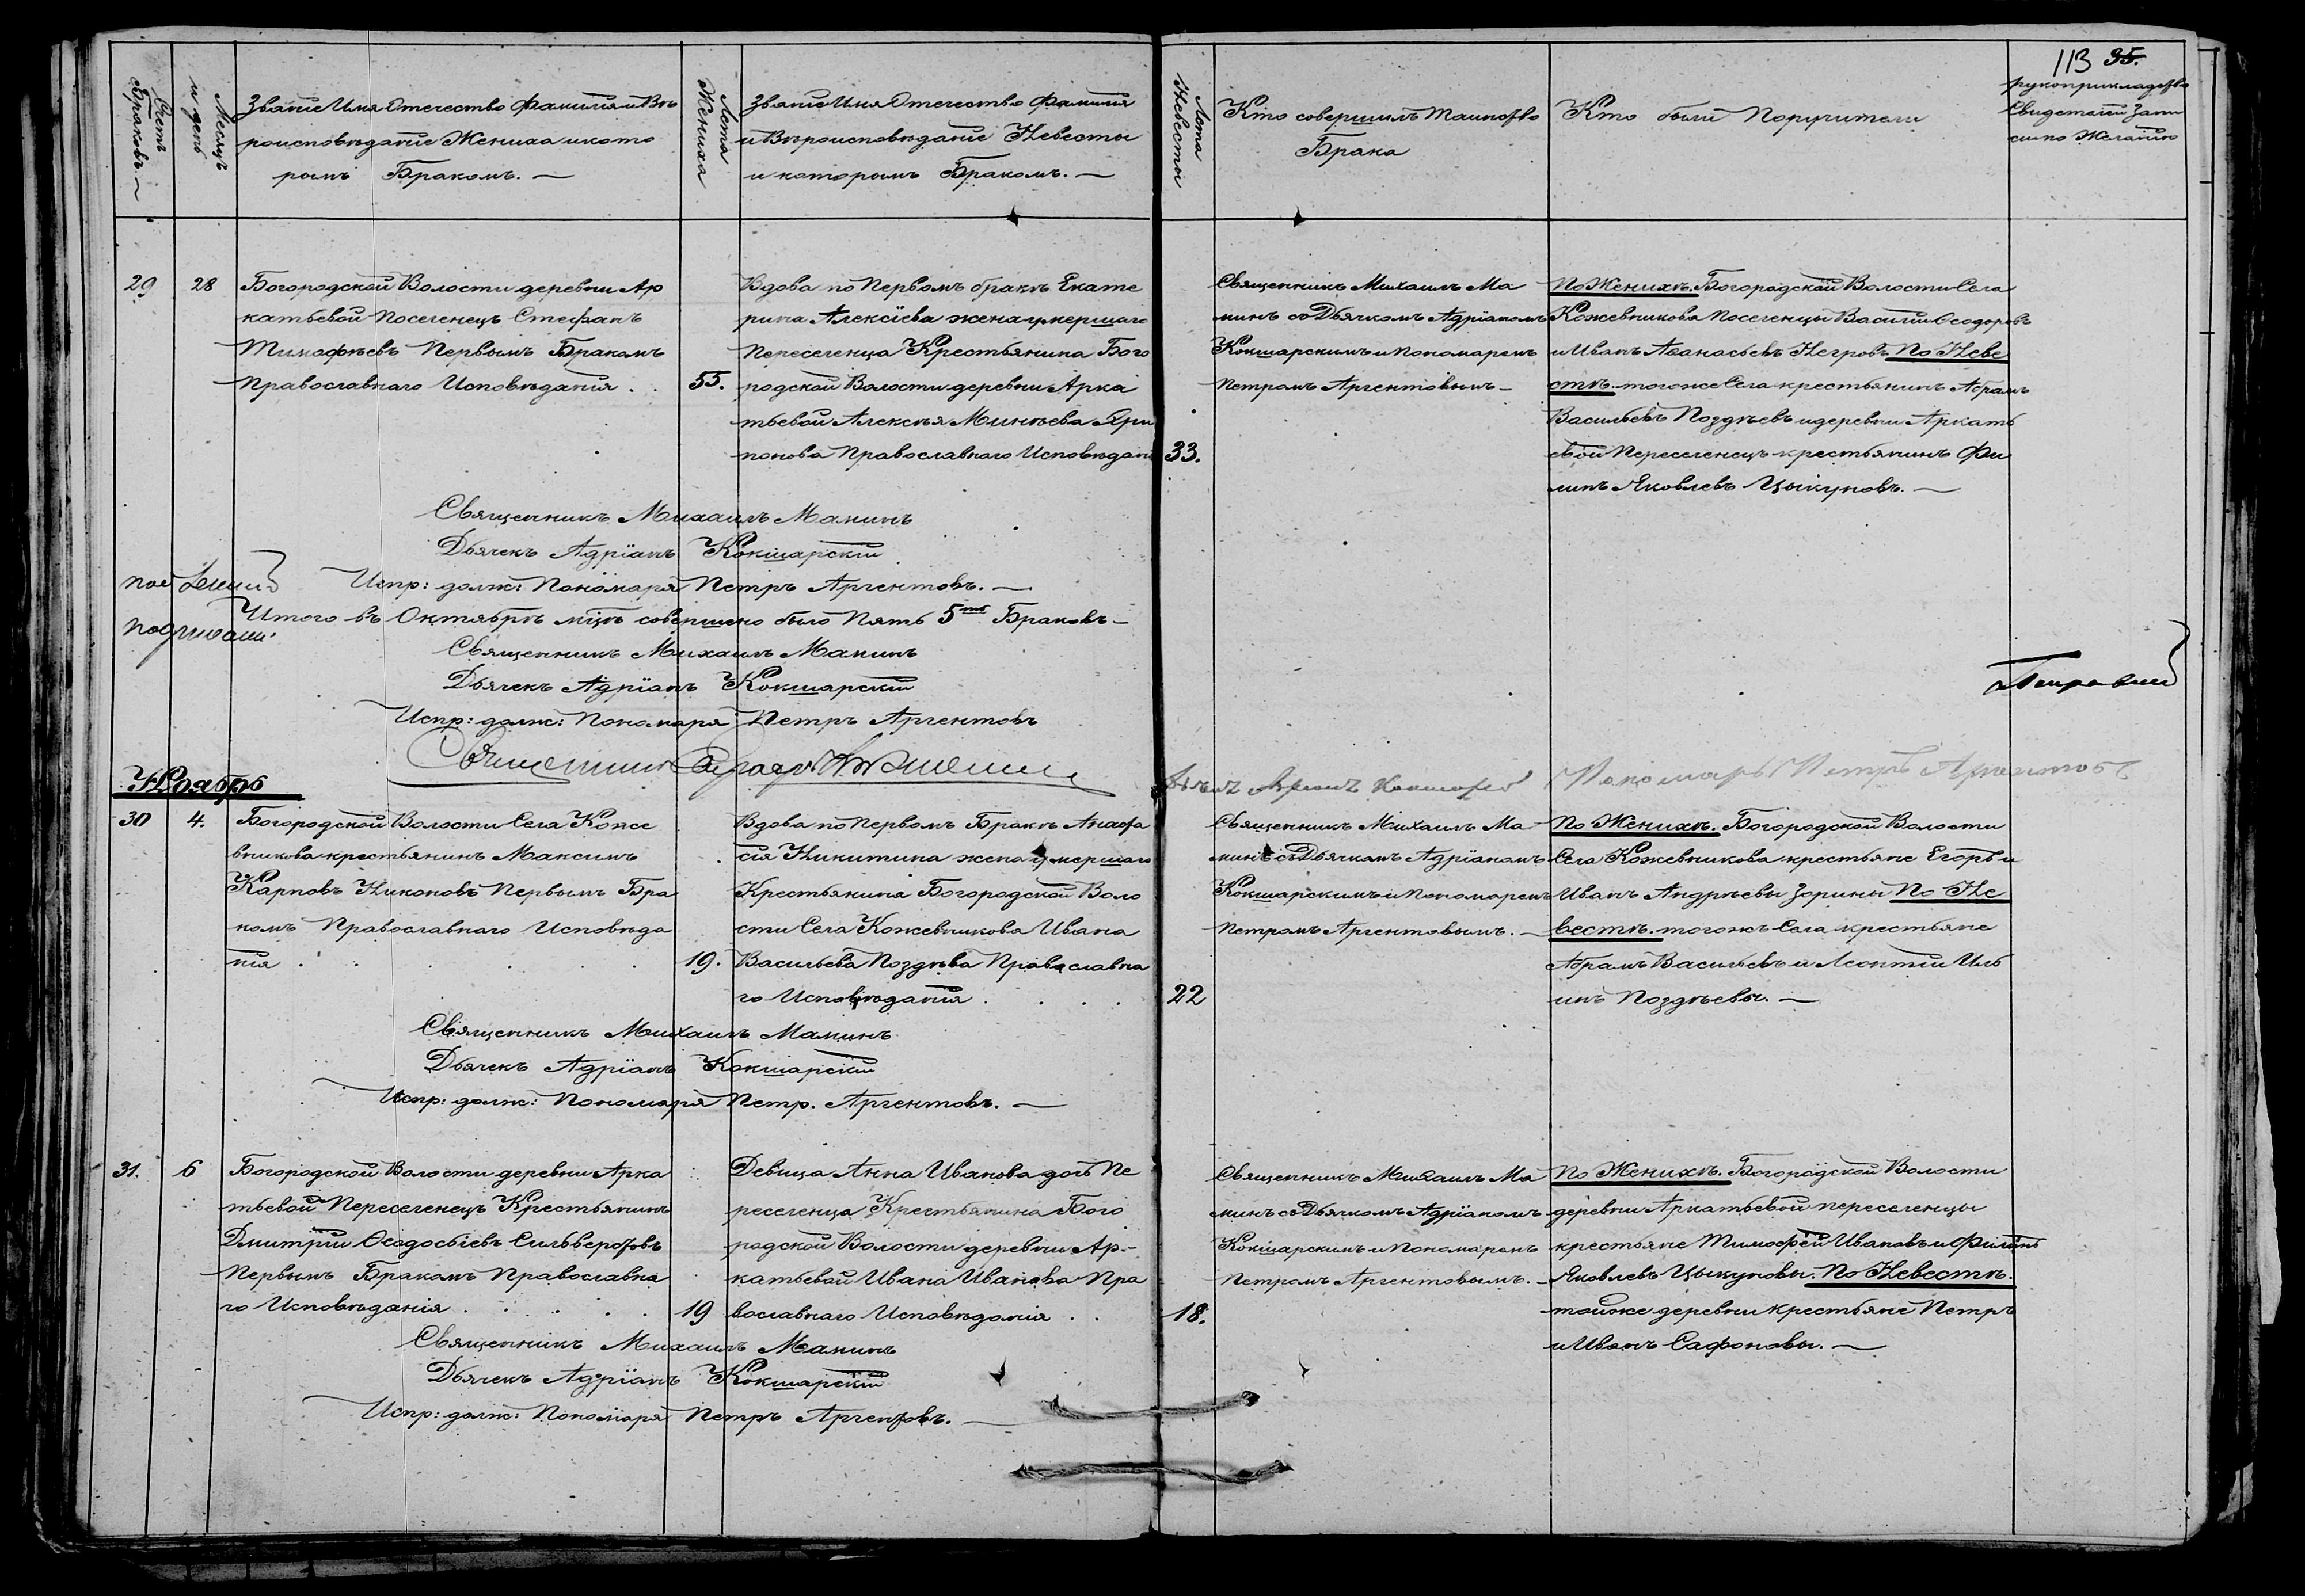 113 35.
Счетъ Браковъ.
Месяцъ и день
Званіе Имя Отечество Фамилія и Вѣ
роисповѣданіе Жениха и кото
рымъ Бракомъ. —
Лета Жениха
Званіе Имя Отечество Фамилія
и Вѣроисповѣданіе Невесты
и которымъ Бракомъ. —
Лета Невесты
Кто совершилъ Таинство
Брака
Кто были Поручители
рукоприкладство
Свидетелей Запи
си по Желанію
29
28
Богородской Волости деревни Ар
катьевой Поселенецъ Стефанъ
Тимофѣевъ Первымъ Бракомъ
Православнаго Исповѣданія .
55.
Вдова по Первомъ бракѣ Екате
рина Алексіева жена умершаго
Переселенца Крестьянина Бого
родской Волости деревни Арка
тьевой Алексѣя Минѣева
Православнаго Исповѣдані
33.
Священникъ Михаилъ Ма
минъ со Дьячкомъ Адріаномъ
Кокшарскимъ и Пономаремъ
Петромъ Аргентовымъ —
По Женихѣ. Богородской Волости Села
Кожевникова Поселенцы Василій Ѳеодоровъ
и Иванъ Аѳанасьевъ Негровъ По Неве
стѣ. тогоже Села крестьянинъ Абрамъ
Васильевъ Поздѣевъ и деревни Аркать
евой Переселенецъ крестьянинъ Фи
липъ Яковлевъ Цыкуновъ. —
Священникъ Михаилъ Маминъ
Дьячекъ Адріанъ Кокшарскій
Испр: долж: Пономаря Петръ Аргентовъ. —
Итого въ Октябрѣ мцѣ совершено было Пять 5ть Браковъ —
Священникъ Михаилъ Маминъ
Дьячекъ Адріанъ Кокшарскій
Испр: долж: Пономаря Петръ Аргентовъ
Священникъ
Пономарь Петръ Аргентовъ
Ноябрь
30
4.
Богородской Волости Села Коже
вникова крестьянинъ Максимъ
Карповъ Никоновъ Первымъ Бра
комъ Православнаго Исповѣда
нія .
19.
Вдова по Первомъ Бракѣ Анафа
сія Никитина жена умершаго
Крестьянина Богородской Воло
сти Села Кожевникова Ивана
Васильева Поздѣва Православна
го Исповѣданія .
22
Священникъ Михаилъ Ма
минъ съ Дьячкамъ Адріаномъ
Кокшарскимъ и Пономаремъ
Петромъ Аргентовымъ. —
По Женихѣ. Богородской Волости
Села Кожевникова крестьяне Егоръ и
Иванъ Андрѣевы Зорины По Не
вестѣ. тогожъ Села крестьяне
Абрамъ Васильевъ и Леонтій Иль
инъ Поздѣевы. —
Священникъ Михаилъ Маминъ
Дьячекъ Адріанъ Кокшарскій
Испр: долж: Пономаря Петр. Аргентовъ. —
31.
6
Богородской Волости деревни Арка
тьевой Переселенецъ Крестьянинъ
Дмитрій Ѳеодосіевъ Сильверстовъ
Первымъ Бракомъ Православна
го Исповѣданія .
19
Девица Анна Иванова дочь Пе
реселенца Крестьянина Бого
родской Волости деревни Ар-
катьевой Ивана Иванова Пра
вославнаго Исповѣданія . .
18.
Священникъ Михаилъ Ма
минъ съ Дьячкомъ Адріаномъ
Кокшарскимъ и Пономаремъ
Петромъ Аргентовымъ. —
По Женихѣ. Богородской Волости
деревни Аркатьевой переселенцы
крестьяне Тимофей Ивановъ и Филипъ
Яковлевъ Цыкуновы. По Невестѣ.
тойже деревни крестьяне Петръ
и Иванъ Сафоновы. —
Священникъ Михаилъ Маминъ
Дьячекъ Адріанъ Кокшарскій
Испр: долж: Пономаря Петръ Аргентовъ. —